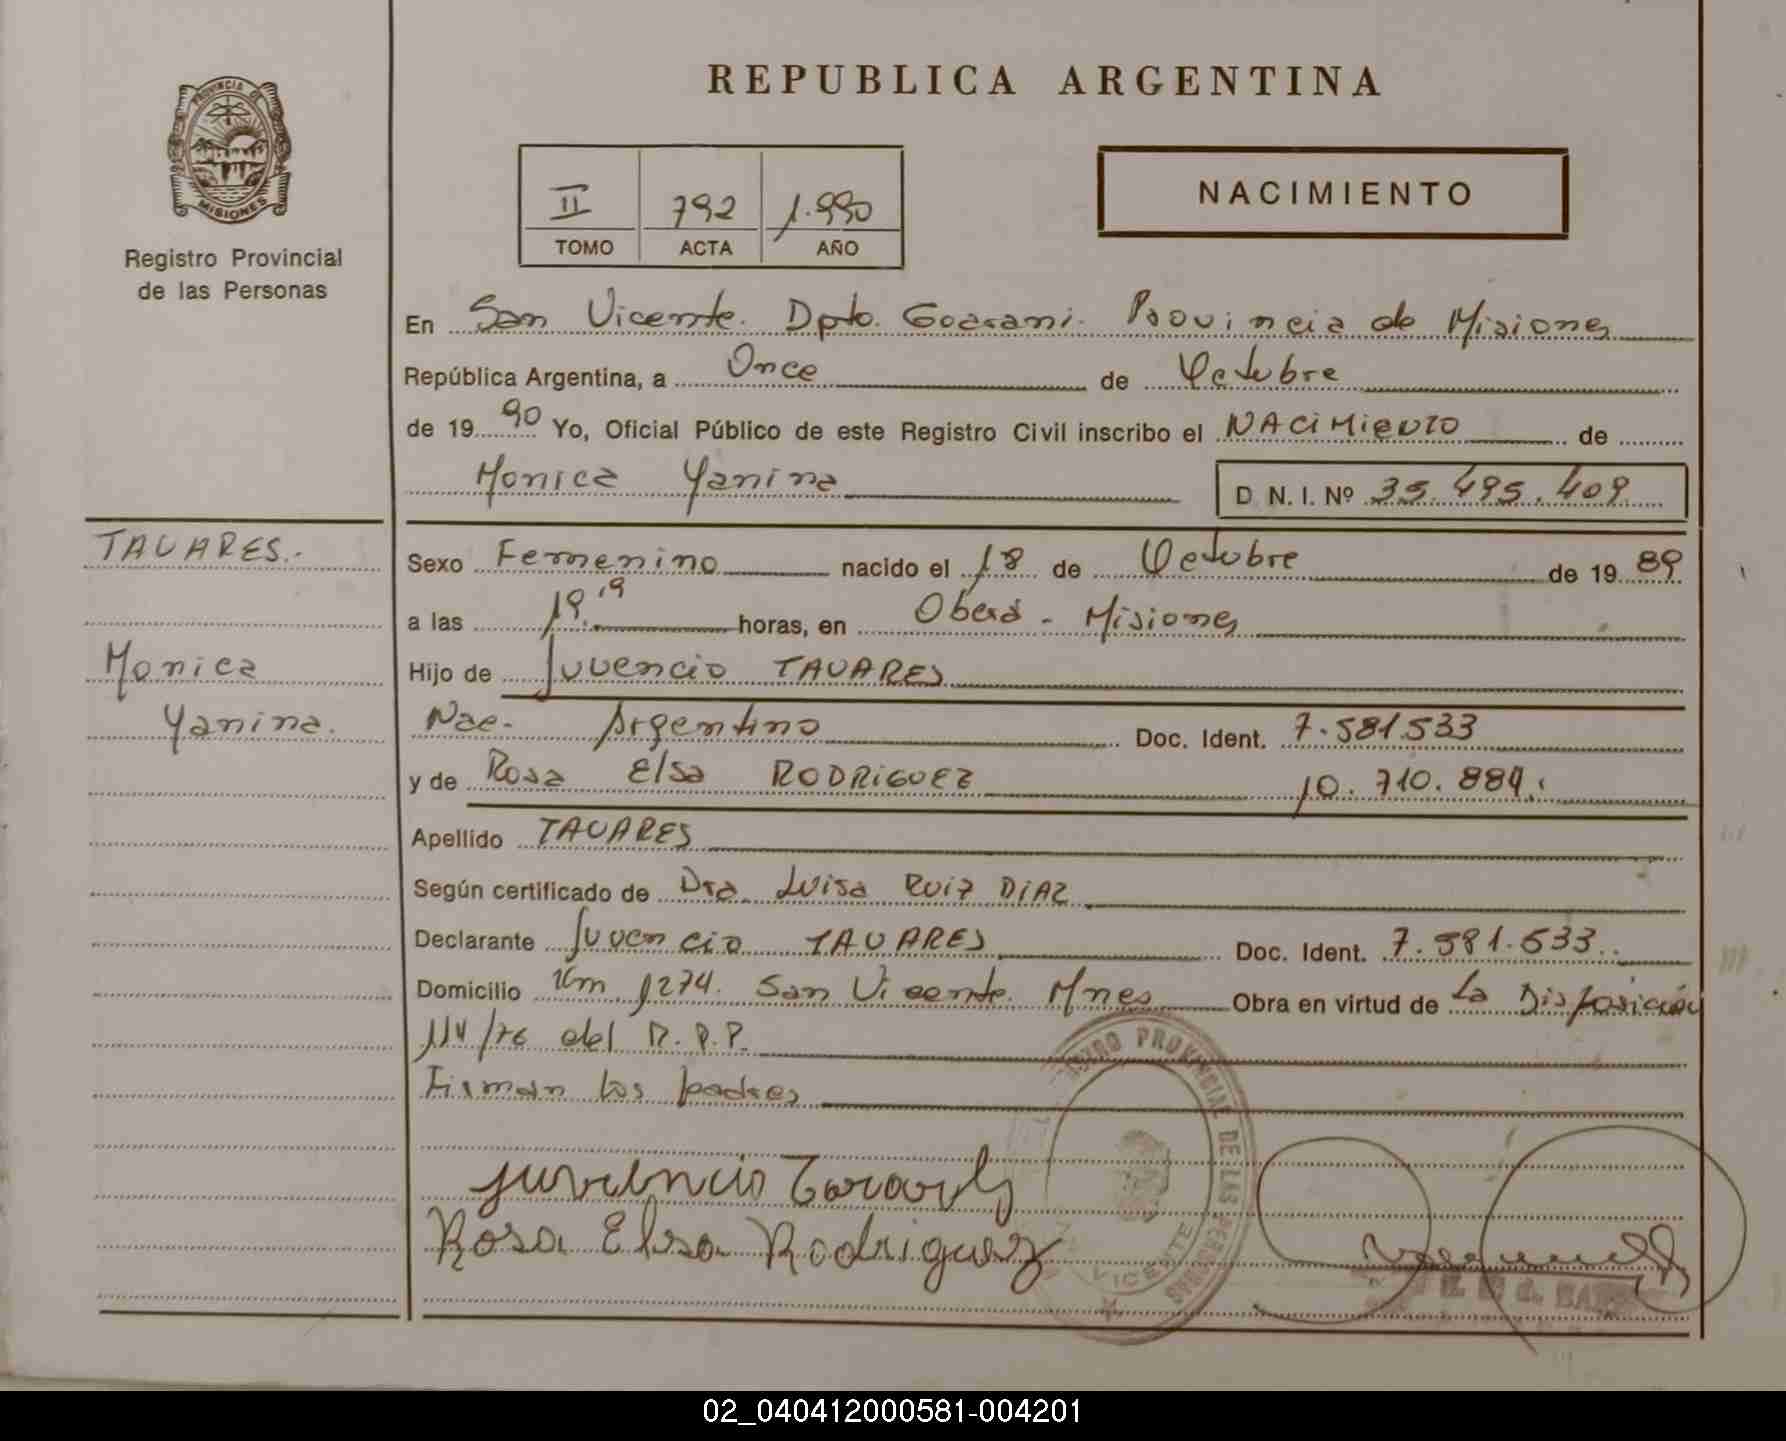 REPUBLICA ARGENTINA
PROVINCIA DE
MISIONES
Registro Provincial
de las Personas
II 792 1.990
TOMO ACTA AÑO
NACIMIENTO
En San Vicente. Dpto. Guarani. Provincia de Misiones
República Argentina, a Once de Octubre
de 19 90 Yo, Oficial Público de este Registro Civil inscribo el NACIMIENTO de
Monica Yanina D. N. I. Nº 35.495.409
TAVARES.-
Monica
Yanina.
Sexo Femenino nacido el 18 de Octubre de 19 89
a las 19.19 horas, en Oberá - Misiones
Hijo de Juvencio TAVARES
Nac. Argentino Doc. Ident. 7.581.533
y de Rosa Elsa RODRIGUEZ 10.710.884.
Apellido TAVARES
Según certificado de Dra. Luisa RUIZ DIAZ
Declarante Juvencio TAVARES Doc. Ident. 7.581.533.
Domicilio Km 1274. San Vicente. Mnes Obra en virtud de La Disposición
114/76 del R.P.P.
Firman los padres
Juvencio Tavares
Rosa Elsa Rodriguez
PROVINCIAL DE LAS PERSONAS
VICENTE
02_040412000581-004201